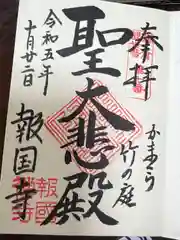 奉拝
かまくら
竹の庭
聖大悲殿
令和五年
十月廿二日
報国寺